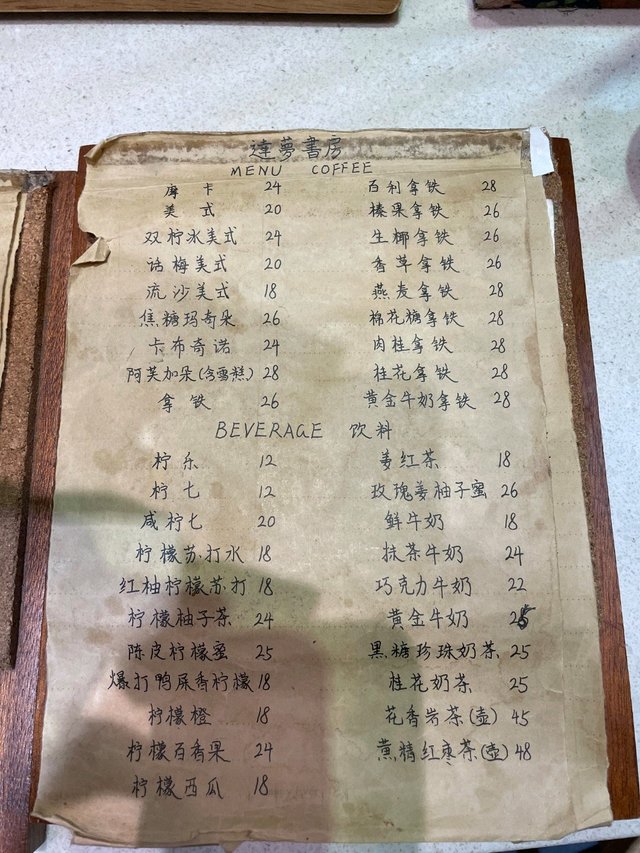 達夢書房
MENU COFFEE
摩卡 24 百利拿铁 28
美式 20 榛果拿铁 26
双柠冰美式 24 生椰拿铁 26
话梅美式 20 香草拿铁 26
流沙美式 18 燕麦拿铁 28
焦糖玛奇朵 26 棉花糖拿铁 28
卡布奇诺 24 肉桂拿铁 28
阿芙加朵(含雪糕) 28 桂花拿铁 28
拿铁 26 黄金牛奶拿铁 28
BEVERAGE 饮料
柠乐 12 姜红茶 18
柠七 12 玫瑰姜柚子蜜 26
咸柠七 20 鲜牛奶 18
柠檬苏打水 18 抹茶牛奶 24
红柚柠檬苏打 18 巧克力牛奶 22
柠檬柚子茶 24 黄金牛奶
陈皮柠檬蜜 25 黑糖珍珠奶茶 25
爆打鸭屎香柠檬 18 桂花奶茶 25
柠檬橙 18 花香岩茶(壶) 45
柠檬百香果 24 精红枣茶(壶) 48
柠檬西瓜 18